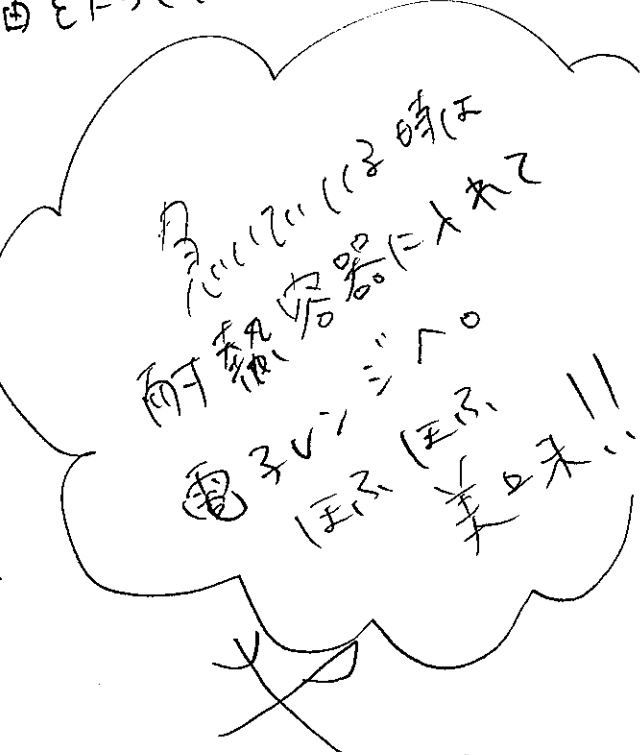 急いでいる時は
耐熱容器に入れて
電子レンジへ。
ほふほふ 美味!!